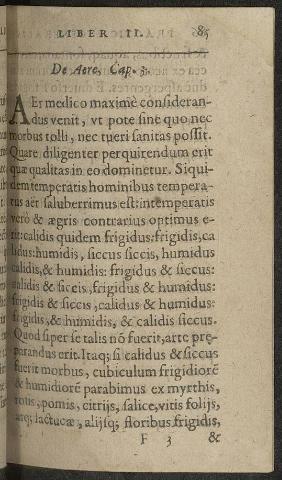 LIBER II. 85
De Aere, Cap. 3.
AEr medico maximè consideran-
dus venit, vt pote sine quo nec
morbus tolli, nec tueri sanitas possit.
Quare diligenter perquirendum erit
quæ qualitas in eo dominetur. Siqui-
dem temperatis hominibus tempera-
tus aër saluberrimus est: intemperatis
verò & ægris contrarius optimus e-
rit: calidis quidem frigidus: frigidis, ca
lidus: humidis, siccus siccis, humidus
calidis, & humidis: frigidus & siccus:
calidis & siccis, frigidus & humidus:
frigidis & siccis, calidus & humidus:
frigidis, & humidis, & calidis siccus.
Quod si per se talis nō fuerit, arte prę-
parandus erit. Itaq; si calidus & siccus
fuerit morbus, cubiculum frigidiorē
& humidiorē parabimus ex myrthis,
rosis, pomis, citrijs, salice, vitis folijs,
atq; lactucæ, alijsq; floribus frigidis,
F 3 &